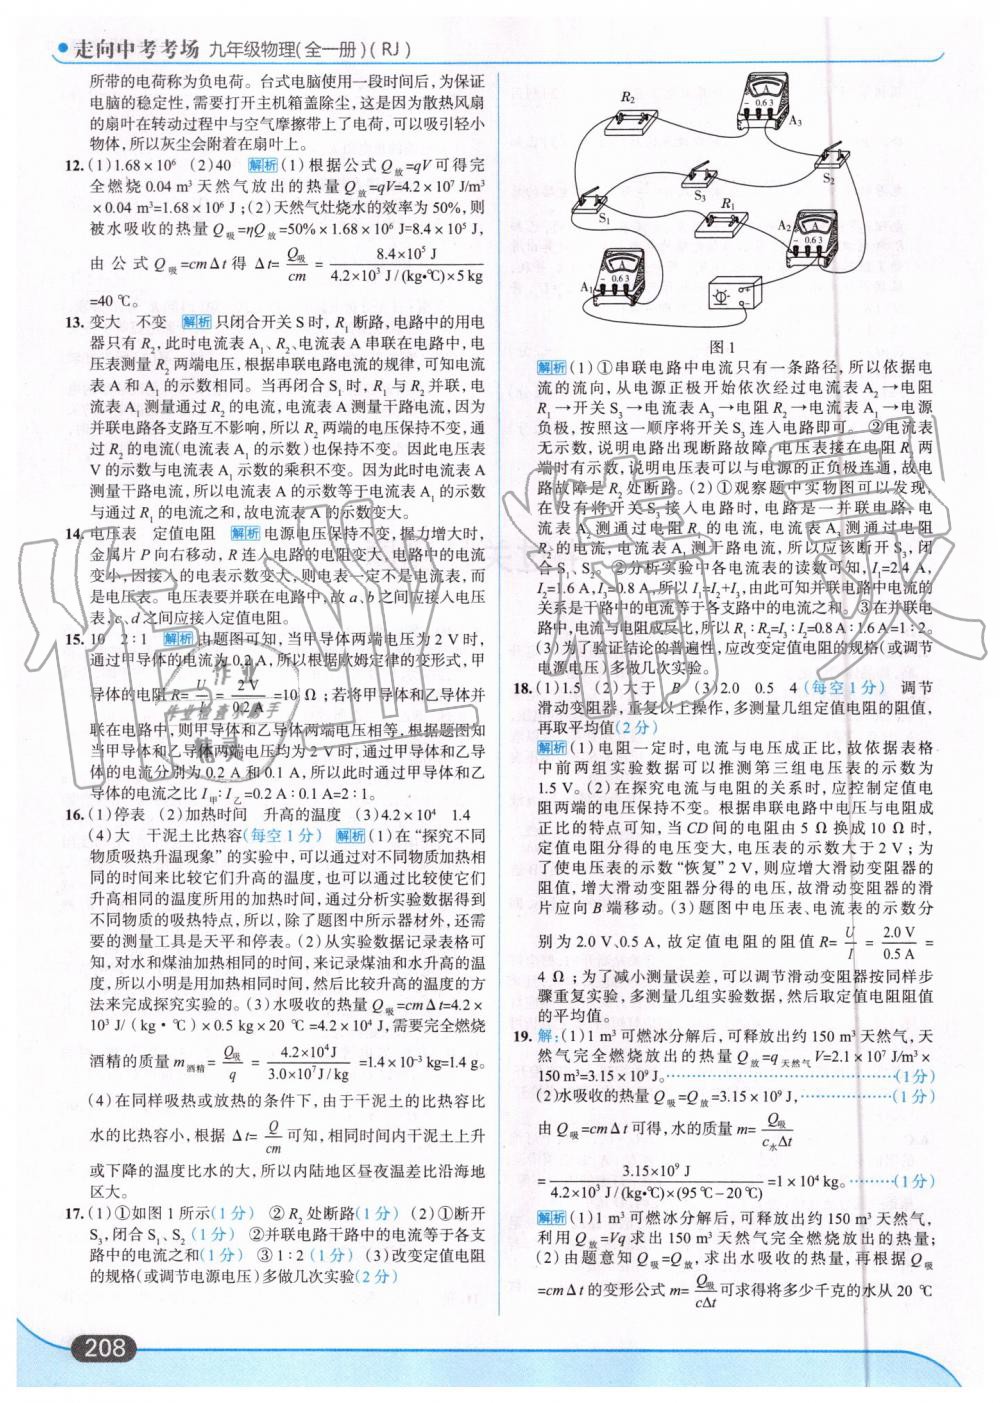 走向中考考场 九年级物理(全一册)(RJ)
所带的电荷称为负电荷。台式电脑使用一段时间后,为保证
电脑的稳定性,需要打开主机箱盖除尘,这是因为散热风扇
的扇叶在转动过程中与空气摩擦带上了电荷,可以吸引轻小
物体,所以灰尘会附着在扇叶上。
12.(1)1.68×10⁶ (2)40 解析(1)根据公式Q放=qV可得完
全燃烧0.04 m³天然气放出的热量Q放=qV=4.2×10⁷ J/m³
×0.04 m³=1.68×10⁶ J;(2)天然气灶烧水的效率为50%,则
被水吸收的热量Q吸=ηQ放=50%×1.68×10⁶ J=8.4×10⁵ J,
由公式Q吸=cmΔt得 Δt=Q吸/cm=8.4×10⁵ J/4.2×10³ J/(kg•℃)×5 kg
=40 ℃。
13. 变大 不变 解析 只闭合开关S时,R₁断路,电路中的用电
器只有R₂,此时电流表A₁、R₂、电流表A串联在电路中,电
压表测量R₂两端电压,根据串联电路电流的规律,可知电流
表A和A₁的示数相同。当再闭合S₁时,R₁与R₂并联,电
流表A₁测量通过R₂的电流,电流表A测量干路电流,因为
并联电路各支路互不影响,所以R₂两端的电压保持不变,通
过R₂的电流(电流表A₁的示数)也保持不变。因此电压表
V的示数与电流表A₁示数的乘积不变。因为此时电流表A
测量干路电流,所以电流表A的示数等于电流表A₁的示数
与通过R₁的电流之和,故电流表A的示数变大。
14. 电压表 定值电阻 解析 电源电压保持不变,握力增大时,
金属片P向右移动,R连入电路的电阻变大,电路中的电流
变小,因接入的电表示数变大,则电表一定不是电流表,而
是电压表。电压表要并联在电路中,故a、b之间应接入电压
表,c、d之间应接入定值电阻。
15. 10 2:1 解析 由题图可知,当甲导体两端电压为2 V时,
通过甲导体的电流为0.2 A,所以根据欧姆定律的变形式,甲
导体的电阻R=U/I=2 V/0.2 A=10 Ω;若将甲导体和乙导体并
联在电路中,则甲导体和乙导体两端电压相等,根据题图知
当甲导体和乙导体两端电压均为2 V时,通过甲导体和乙导
体的电流分别为0.2 A和0.1 A,所以此时通过甲导体和乙
导体的电流之比I甲:I乙=0.2 A:0.1 A=2:1。
16.(1)停表 (2)加热时间 升高的温度 (3)4.2×10⁴ 1.4
(4)大 干泥土比热容(每空1分) 解析(1)在“探究不同
物质吸热升温现象”的实验中,可以通过对不同物质加热相
同的时间来比较它们升高的温度,也可以通过比较使它们
升高相同的温度所用的加热时间,通过分析实验数据得到
不同物质的吸热特点,所以,除了题图中所示器材外,还需
要的测量工具是天平和停表。(2)从实验数据记录表格可
知,对水和煤油加热相同的时间,来记录煤油和水升高的温
度,所以小明是用加热相同时间,然后比较升高的温度的方
法来完成探究实验的。(3)水吸收的热量Q吸=cmΔt=4.2×
10³ J/(kg·℃)×0.5 kg×20 ℃=4.2×10⁴ J,需要完全燃烧
酒精的质量m酒精=Q吸/q=4.2×10⁴J/3.0×10⁷J/kg=1.4×10⁻³ kg=1.4 g。
(4)在同样吸热或放热的条件下,由于干泥土的比热容比
水的比热容小,根据Δt=Q/cm可知,相同时间内干泥土上升
或下降的温度比水的大,所以内陆地区昼夜温差比沿海地
区大。
17.(1)①如图1所示(1分) ②R₂处断路(1分) (2)①断开
S₃,闭合S₁、S₂(1分) ②并联电路干路中的电流等于各支
路中的电流之和(1分) ③1:2(1分) (3)改变定值电阻
的规格(或调节电源电压)多做几次实验(2分)
R₂
A
- 0.6 3
A₃
S₂
S₃
S₁
R₁
A₂
- 0.6 3
- 0.6 3
A₁
图1
解析(1)①串联电路中电流只有一条路径,所以依据电
流的流向,从电源正极开始依次经过电流表A₂→电阻
R₁→开关S₃→电流表A₃→电阻R₂→电流表A₁→电源
负极,按照这一顺序将开关S₃连入电路即可。②电流表
无示数,说明电路出现断路故障,电压表接在电阻R₂两
端时有示数,说明电压表可以与电源的正负极连通,故电
路故障是R₂处断路。(2)①观察题中实物图可以发现,
在没有将开关S₃接入电路时,电路是一并联电路,电
流表A₃测通过电阻R₂的电流,电流表A₂测通过电阻
R₁的电流,电流表A₁测干路电流,所以应该断开S₃,闭
合S₁、S₂。②分析实验中各电流表的读数可知,I₁=2.4 A,
I₂=1.6 A,I₃=0.8 A,所以I₁=I₂+I₃,由此可知并联电路中电流的
关系是干路中的电流等于各支路中的电流之和。③在并联电
路中,电流与电阻成反比,所以R₁:R₂=I₃:I₂=0.8 A:1.6 A=1:2。
(3)为了验证结论的普遍性,应改变定值电阻的规格(或调节
电源电压)多做几次实验。
18.(1)1.5 (2)大于 B (3)2.0 0.5 4(每空1分) 调节
滑动变阻器,重复以上操作,多测量几组定值电阻的阻值,
再取平均值(2分)
解析(1)电阻一定时,电流与电压成正比,故依据表格
中前两组实验数据可以推测第三组电压表的示数为
1.5 V。(2)在探究电流与电阻的关系时,应控制定值电
阻两端的电压保持不变。根据串联电路中电压与电阻成
正比的特点可知,当CD间的电阻由5 Ω换成10 Ω时,
定值电阻分得的电压变大,电压表的示数大于2 V;为
了使电压表的示数“恢复”2 V,则应增大滑动变阻器的
阻值,增大滑动变阻器分得的电压,故滑动变阻器的滑
片应向B端移动。(3)题图中电压表、电流表的示数分
别为2.0 V、0.5 A,故定值电阻的阻值R=U/I=2.0 V/0.5 A=
4 Ω;为了减小测量误差,可以调节滑动变阻器按同样步
骤重复实验,多测量几组实验数据,然后取定值电阻阻值
的平均值。
19. 解:(1)1 m³可燃冰分解后,可释放出约150 m³天然气,天
然气完全燃烧放出的热量Q放=q天然气V=2.1×10⁷ J/m³×
150 m³=3.15×10⁹ J。……(1分)
(2)水吸收的热量Q吸=Q放=3.15×10⁹ J,……(1分)
由Q吸=cmΔt可得,水的质量m=Q吸/c水Δt
=3.15×10⁹ J/4.2×10³ J/(kg•℃)×(95℃-20℃)=1×10⁴ kg。……(1分)
解析(1)1 m³可燃冰分解后,可释放出约150 m³天然气,
利用Q放=Vq求出150 m³天然气完全燃烧放出的热量;
(2)由题意知Q吸=Q放,求出水吸收的热量,再根据Q吸
=cmΔt的变形公式m=Q吸/cΔt可求得将多少千克的水从20 ℃
208
作业精灵
作业
作业检查小助手
精灵